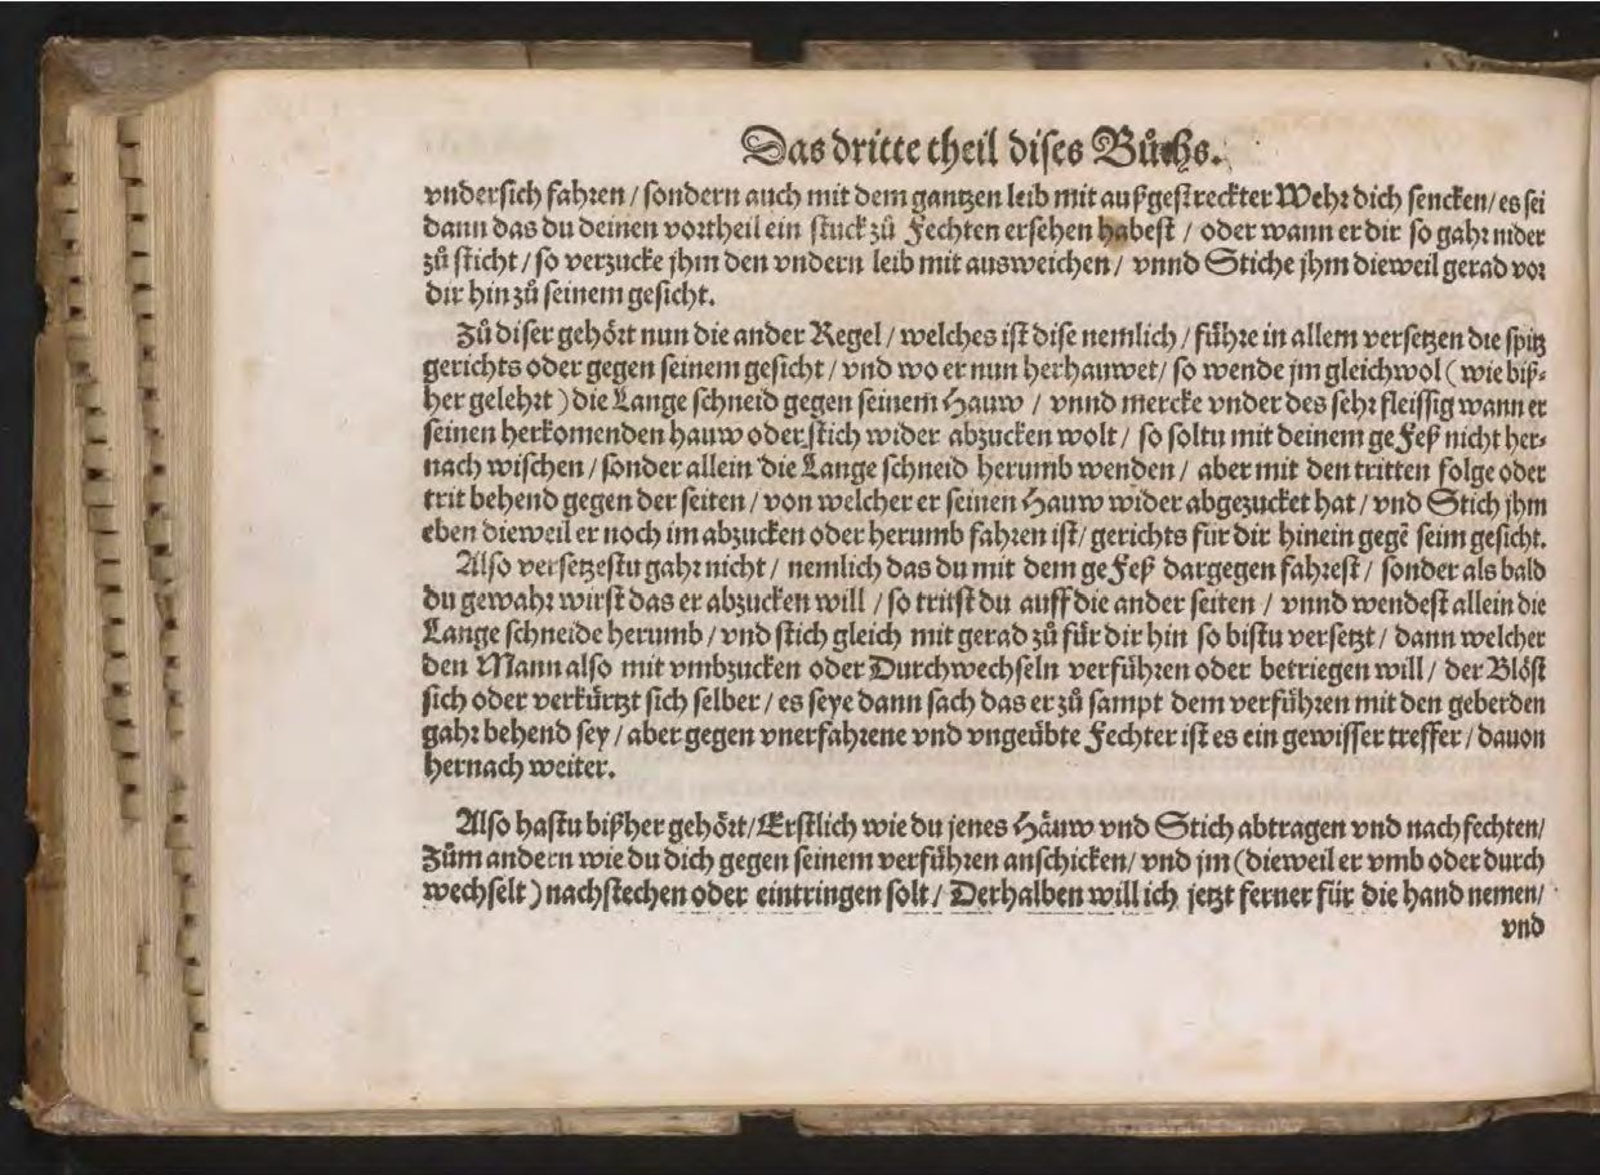 Das dritte theil dises Bůchs.
vndersich fahren / sondern auch mit dem gantzen leib mit außgestreckter Wehr dich sencken / es sei
dann das du deinen vortheil ein stuck zů Fechten ersehen habest / oder wann er dir so gahr nider
zů sticht / so verzucke jhm den vndern leib mit ausweichen / vnnd Stiche jhm dieweil gerad vor
dir hin zů seinem gesicht.
Zů diser gehört nun die ander Regel / welches ist dise nemlich / führe in allem versetzen die spitz
gerichts oder gegen seinem gesicht / vnd wo er nun herhauwet / so wende jm gleichwol ( wie biß-
her gelehrt ) die Lange schneid gegen seinem Hauw / vnnd mercke vnder des sehr fleissig wann er
seinen herkomenden hauw oder stich wider abzucken wolt / so soltu mit deinem geFeß nicht her-
nach wischen / sonder allein die Lange schneid herumb wenden / aber mit den tritten folge oder
trit behend gegen der seiten / von welcher er seinen Hauw wider abgezucket hat / vnd Stich jhm
eben dieweil er noch im abzucken oder herumb fahren ist / gerichts für dir hinein gegē seim gesicht.
Also versetzestu gahr nicht / nemlich das du mit dem geFeß dargegen fahrest / sonder als bald
du gewahr wirst das er abzucken will / so tritst du auff die ander seiten / vnnd wendest allein die
Lange schneide herumb / vnd stich gleich mit gerad zů für dir hin so bistu versetzt / dann welcher
den Mann also mit vmbzucken oder Durchwechseln verführen oder betriegen will / der Blöst
sich oder verkürtzt sich selber / es seye dann sach das er zů sampt dem verführen mit den geberden
gahr behend sey / aber gegen vnerfahrene vnd vngeübte Fechter ist es ein gewisser treffer / dauon
hernach weiter.
Also hastu bißher gehört / Erstlich wie du jenes Häuw vnd Stich abtragen vnd nachfechten /
Zům andern wie du dich gegen seinem verführen anschicken / vnd jm ( dieweil er vmb oder durch
wechselt ) nachstechen oder eintringen solt / Derhalben will ich jetzt ferner für die hand nemen /
vnd